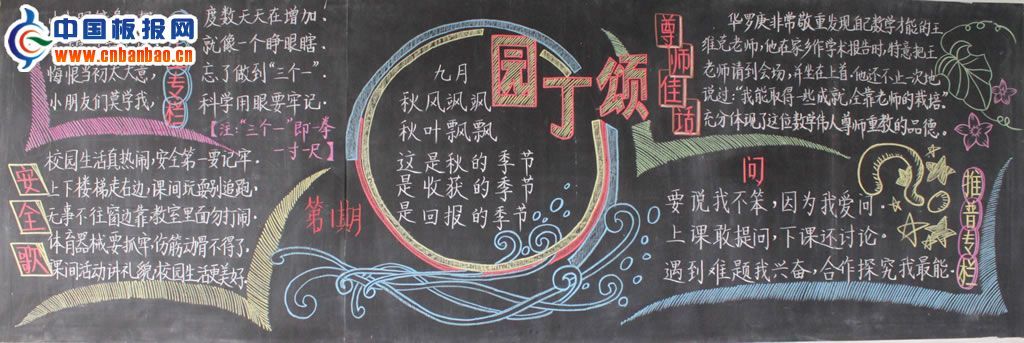 中国板报网
www.cnbanbao.cn
度数天天在增加!
就像一个睁眼瞎.
悔恨当初太大意,
忘了做到“三个一”.
小朋友们莫学我,
科学用眼要牢记.
【注:“三个一”即一拳
一寸一尺】
专栏
安全歌
校园生活真热闹,安全第一要记牢.
上下楼梯走右边,课间玩耍别追跑,
无事不往窗边靠,教室里面勿打闹.
体育器械要抓牢,伤筋动骨不得了.
课间活动讲礼貌,校园生活更美好.
九月
秋风飒飒
秋叶飘飘
这是秋的季节
是收获的季节
是回报的季节
第1期
园丁颂
尊师佳话
华罗庚非常敬重发现自己数学才能的王
维克老师,他在家乡作学术报告时,特意把王
老师请到会场,并坐在上首.他还不止一次地
说过:“我能取得一些成就,全靠老师的栽培.”
充分体现了这位数学伟人尊师重教的品德.
问
要说我不笨,因为我爱问.
上课敢提问,下课还讨论。
遇到难题我兴奋,合作探究我最能.
推普专栏